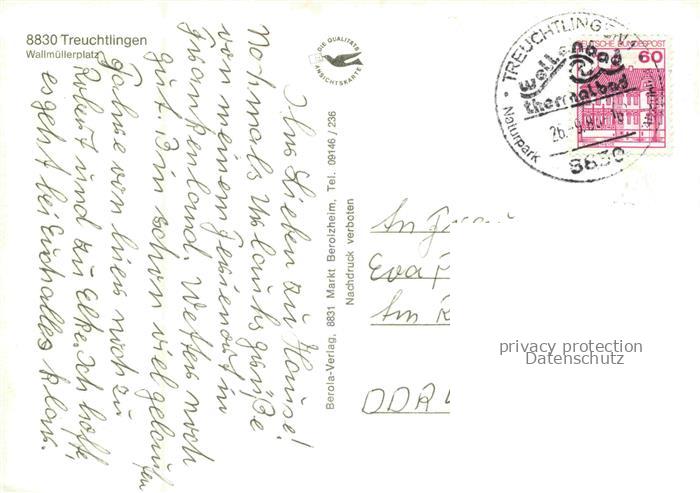 8830 Treuchtlingen
Wallmüllerplatz
DIE QUALITÄTS
ANSICHTSKARTE
Ihr Lieben zu Hause!
Nochmals Urlaubsgrüße
von meinem Ferienort in
Frankenland. Wetter noch
gut. Bin schon viel gelaufen
Fahre von hier noch zu
Robert und zu Elke. Ich hoffe,
es geht bei Euch alles klar.
Berola-Verlag, 8831 Markt Berolzheim, Tel. 09146 / 236
Nachdruck verboten
TREUCHTLINGEN
wellenbad
thermalbad
Naturpark
8830
DEUTSCHE BUNDESPOST
60
An
Eva
Am
DDR
privacy protection
Datenschutz